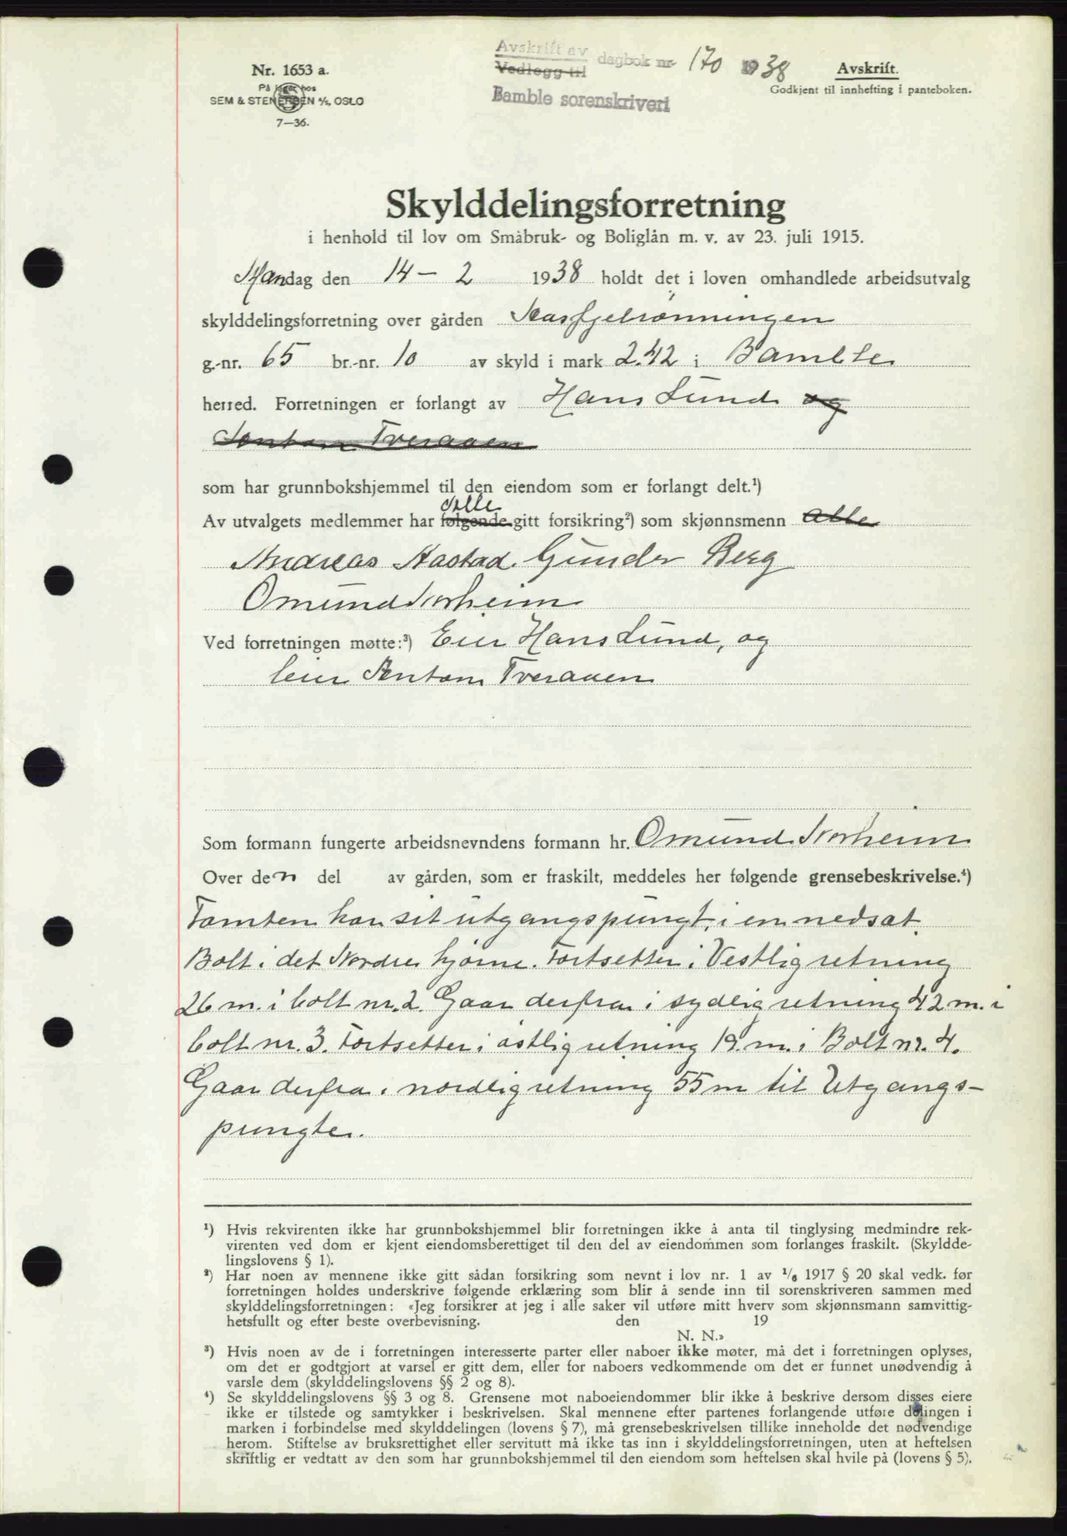 Avskrift av
Vedlegg til dagbok nr 170 1938
Bamble sorenskriveri
Nr. 1653 a.
På lager hos
SEM & STENERSEN A/S, OSLO
7—36.
Avskrift.
Godkjent til innhefting i panteboken.
Skylddelingsforretning
i henhold til lov om Småbruk- og Boliglån m. v. av 23. juli 1915.
Mandag den 14 - 2 1938 holdt det i loven omhandlede arbeidsutvalg
skylddelingsforretning over gården
g.-nr. 65 br.-nr. 10 av skyld i mark 2.42 i Bamble
herred. Forretningen er forlangt av Hans Lund og
Anton Tveraaen
som har grunnbokshjemmel til den eiendom som er forlangt delt.¹)
Alle
Av utvalgets medlemmer har følgende gitt forsikring²) som skjønnsmenn alle
Andreas Gunder Berg
Omund Norheim
Ved forretningen møtte:³) Eier Hans Lund, og
eier Anton Tveraaen
Som formann fungerte arbeidsnevndens formann hr. Omund Norheim
Over den del av gården, som er fraskilt, meddeles her følgende grensebeskrivelse.⁴)
Tomten har sit utgangspungt i en nedsat
Bolt i det Nordre hjørne. Fortsetter i Vestlig retning
26 m. i bolt nr. 2. Gaar derfra i sydlig retning 42 m. i
bolt nr. 3. Fortsetter i østlig retning 19 m. i Bolt nr. 4.
Gaar derfra i nordlig retning 55 m til Utgangs-
pungtet.
¹) Hvis rekvirenten ikke har grunnbokshjemmel blir forretningen ikke å anta til tinglysing medmindre rek-
virenten ved dom er kjent eiendomsberettiget til den del av eiendommen som forlanges fraskilt. (Skyldde-
lingslovens § 1).
²) Har noen av mennene ikke gitt sådan forsikring som nevnt i lov nr. 1 av 1/6 1917 § 20 skal vedk. før
forretningen holdes underskrive følgende erklæring som blir å sende inn til sorenskriveren sammen med
skylddelingsforretningen: «Jeg forsikrer at jeg i alle saker vil utføre mitt hverv som skjønnsmann samvittig-
hetsfullt og efter beste overbevisning. den 19
N. N.»
³) Hvis noen av de i forretningen interesserte parter eller naboer ikke møter, må det i forretningen oplyses,
om det er godtgjort at varsel er gitt dem, eller for naboers vedkommende om det er funnet unødvendig å
varsle dem (skylddelingslovens §§ 2 og 8).
⁴) Se skylddelingslovens §§ 3 og 8. Grensene mot naboeiendommer blir ikke å beskrive dersom disses eiere
ikke er tilstede og samtykker i beskrivelsen. Skal mennene efter partenes forlangende utføre delingen i
marken i forbindelse med skylddelingen (lovens § 7), må grensebeskrivelsen tillike inneholde det nødvendige
herom. Stiftelse av bruksrettighet eller servitutt må ikke tas inn i skylddelingsforretningen, uten at heftelsen
skriftlig er vedtatt av den som har grunnbokshjemmel til den eiendom som heftelsen skal hvile på (lovens § 5).